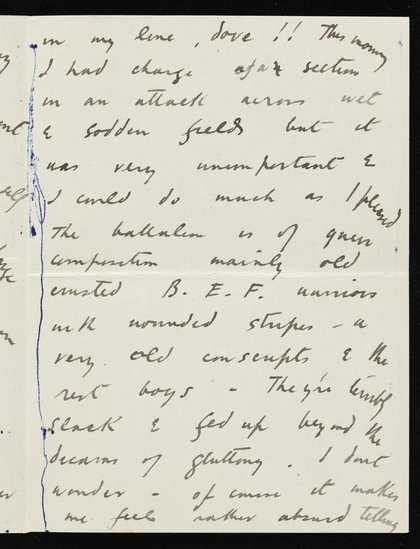 in my line, dove!! This morning
I had charge of a section
in an attack across wet
& sodden fields but it
was very unimportant &
I could do much as I pleased
The battalion is of queer
composition mainly old
crusted B.E.F. warriors
with wounded stripes - a
very old conscripts & the
rest boys - They're terribly
slack & fed up beyond the
dreams of gluttony. I dont
wonder - of course it makes
me feel rather absurd telling